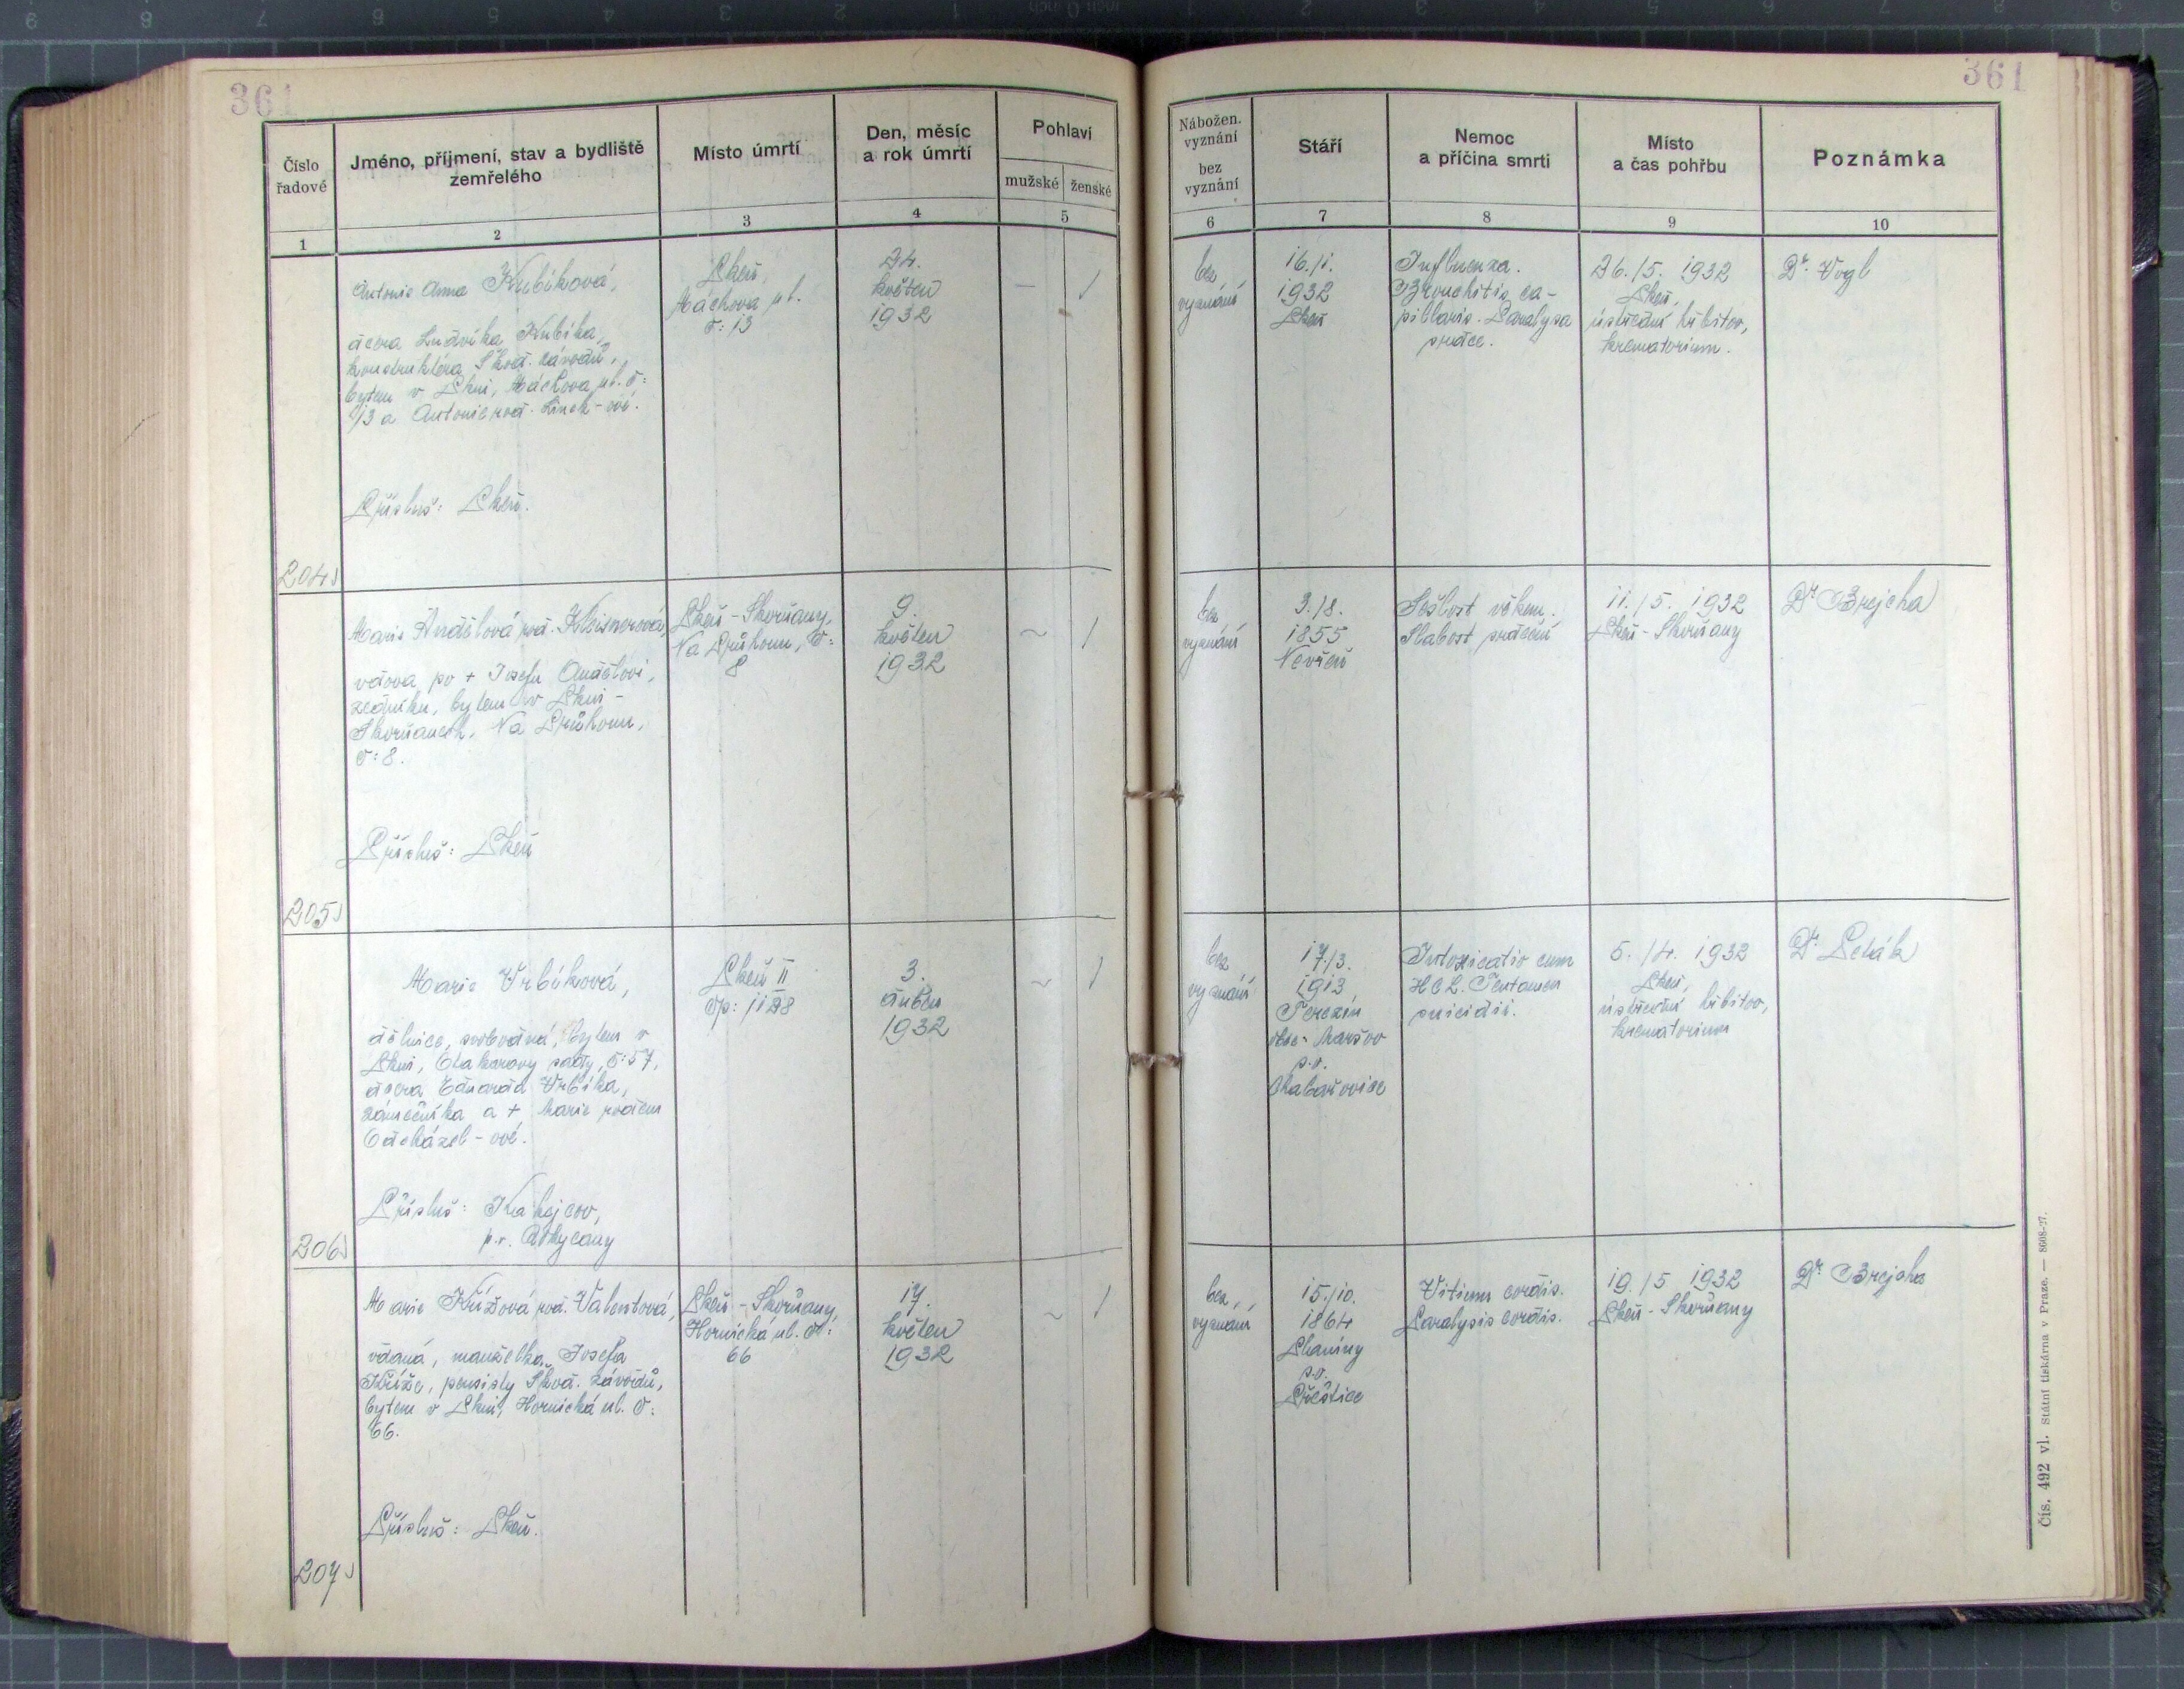 361
361
Číslo řadové
Jméno, příjmení, stav a bydliště zemřelého
Místo úmrtí
Den, měsíc a rok úmrtí
Pohlaví
mužské
ženské
Nábožen. vyznání
bez vyznání
Stáří
Nemoc a příčina smrti
Místo a čas pohřbu
Poznámka
1
2
3
4
5
6
7
8
9
10
204
Antonie Anna Kubíková,
dcera Ludvíka Kubíka,
konstruktéra Škod. závodů,
bytem v Plzni, Máchova ul. č:
13 a Antonie rod. Linek-ové.
Přísluš: Plzeň.
Plzeň,
Máchova ul.
č: 13
24.
květen
1932
— /
bez
vyznání
16./1.
1932
Plzeň
Influenza.
Bronchitis ca-
pillaris. Paralysa
srdce.
26./5. 1932
Plzeň,
ústřední hřbitov,
krematorium.
Dr. Vogl
205
Marie Andělová rod. Kleisnerová,
vdova po + Josefu Andělovi,
zedníku, bytem v Plzni-
Skvrňanech, Na Průhonu,
č: 8.
Přísluš: Plzeň
Plzeň-Skvrňany,
Na Průhonu, č:
8
9.
květen
1932
~ /
bez
vyznání
3./8.
1855
Nevřeň
Sešlost věkem.
Slabost srdeční
11./5. 1932
Plzeň-Skvrňany
Dr Brejcha
206
Marie Vrbíková,
dělnice, svobodná, bytem v
Plzni, Otakarovy sady, č: 57,
dcera Eduarda Vrbíka,
zámečníka a + Marie rozen
Odcházel-ové.
Přísluš:
p. r. Rokycany
Plzeň II
čp: 1128
3.
duben
1932
~ /
bez
vyznání
17./3.
1913
Terezín
obec Maršov
p. o.
Chabařovice
Intoxicatio cum
HCL. Tentamen
suicidii.
5./4. 1932
Plzeň,
ústřední hřbitov,
krematorium
207
Marie Křížová rod. Valentová,
vdaná, manželka Josefa
Kříže, pensisty Škod. závodů,
bytem v Plzni, Hornická ul. č:
66.
Přísluš: Plzeň.
Plzeň-Skvrňany,
Hornická ul. č:
66
17.
květen
1932
~ /
bez
vyznání
15./10.
1864
p. o.
Přeštice
Vitium cordis.
Paralysis cordis.
19./5 1932
Plzeň-Skvrňany
Dr. Brejcha
Čís. 492 vl. Státní tiskárna v Praze. — 8608-27.